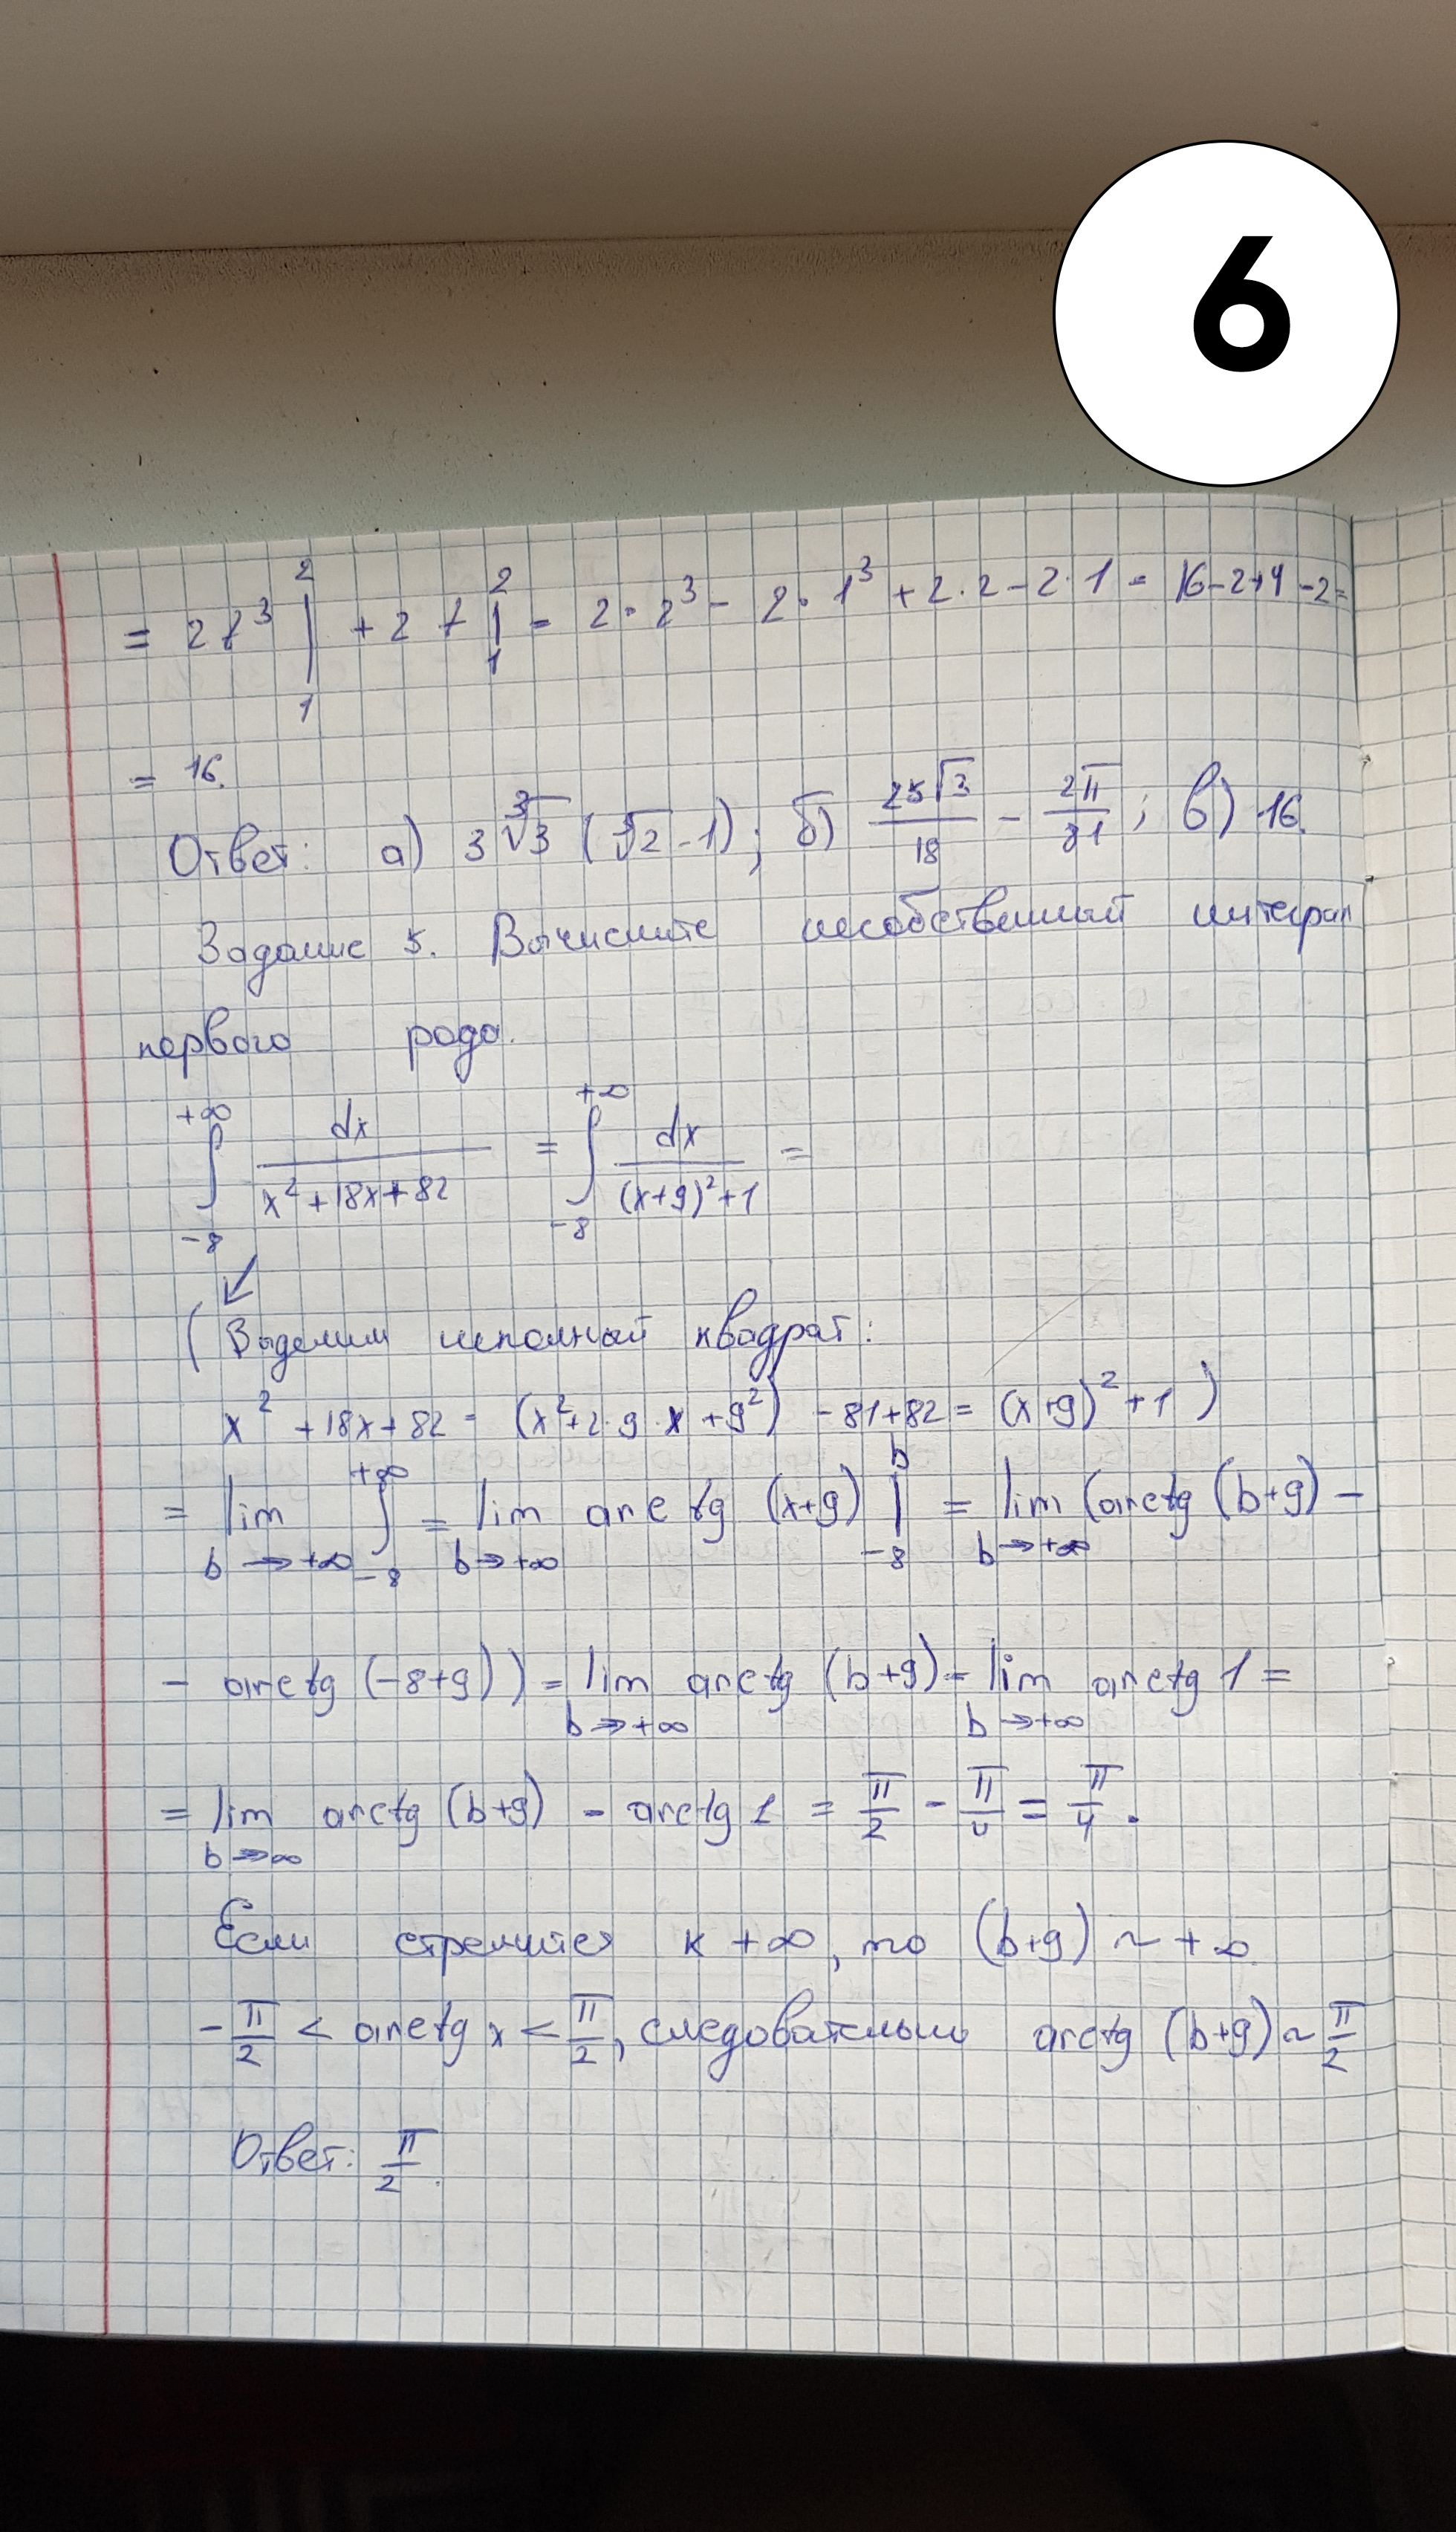 6
= 2t³ |₁² + 2t |₁² = 2·2³ - 2·1³ + 2·2 - 2·1 = 16-2+4-2=
= 16.
Ответ: а) 3∛3 (∛2 - 1); б) 25√3/18 - 2π/81; в) 16.
Задание 5. Вычислите несобственный интеграл
первого рода.
∫₋₈^{+∞} dx/(x²+18x+82) = ∫₋₈^{+∞} dx/((x+9)²+1) =
↙
(Выделим неполный квадрат:
x² + 18x + 82 = (x²+2·9·x+9²) - 81+82 = (x+9)² + 1)
= lim_{b→+∞} ∫₋₈^{+∞} = lim_{b→+∞} arctg (x+9) |₋₈^b = lim_{b→+∞} (arctg (b+9) -
- arctg (-8+9)) = lim_{b→+∞} arctg (b+9) - lim_{b→+∞} arctg 1 =
= lim_{b→∞} arctg (b+9) - arctg 1 = π/2 - π/4 = π/4.
Если стремится к +∞, то (b+9) ~ +∞
-π/2 < arctg x < π/2, следовательно arctg (b+9) ~ π/2
Ответ: π/2.